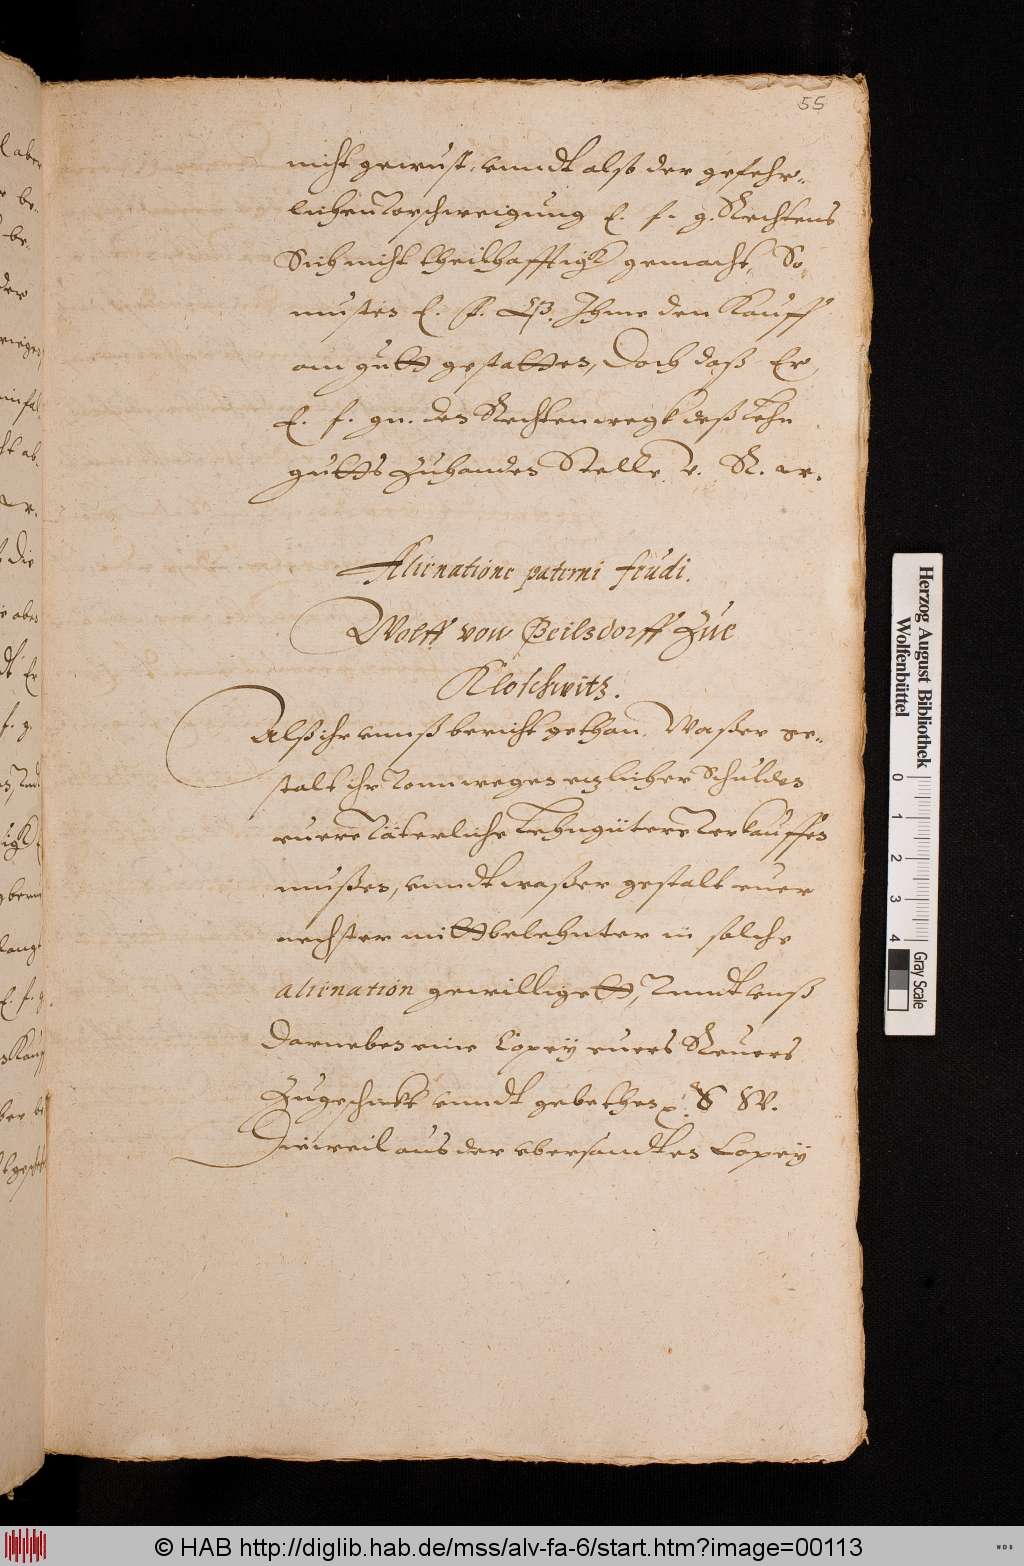 55
nicht gewust, vnndt also der gefehr-
lichen Vorschweigung E. f. g. Rechtens
Sich nicht theilhafftigk gemacht, So
musten E. F. G. Ihme den Kauff
am gutt gestatten, Doch daß Er
E. f. gn. den Rechten wegk deß Lehn
gutts Zuhanden Stelle. V. R. w.
Alienatione paterni feudi.
Wolff von Beilsdorff Zue
Kloschwitz.
Alß ihr vnnß bericht gethan. Waßer ge-
stalt ihr Vonn wegen etzlicher Schulden
euere Väterliche Lehngütere Verkauffen
mußen, vnndt waßer gestalt euer
nechster mittbelehnter in solche
alienation gewilligett, Vnndt vnß
Darneben eine Copey euers Reuers
Zugeschickt vnndt gebethen S W.
Dieweil aus der vbersandten Copey
Herzog August Bibliothek
Wolfenbüttel
0 1 2 3 4
Gray Scale
© HAB http://diglib.hab.de/mss/alv-fa-6/start.htm?image=00113